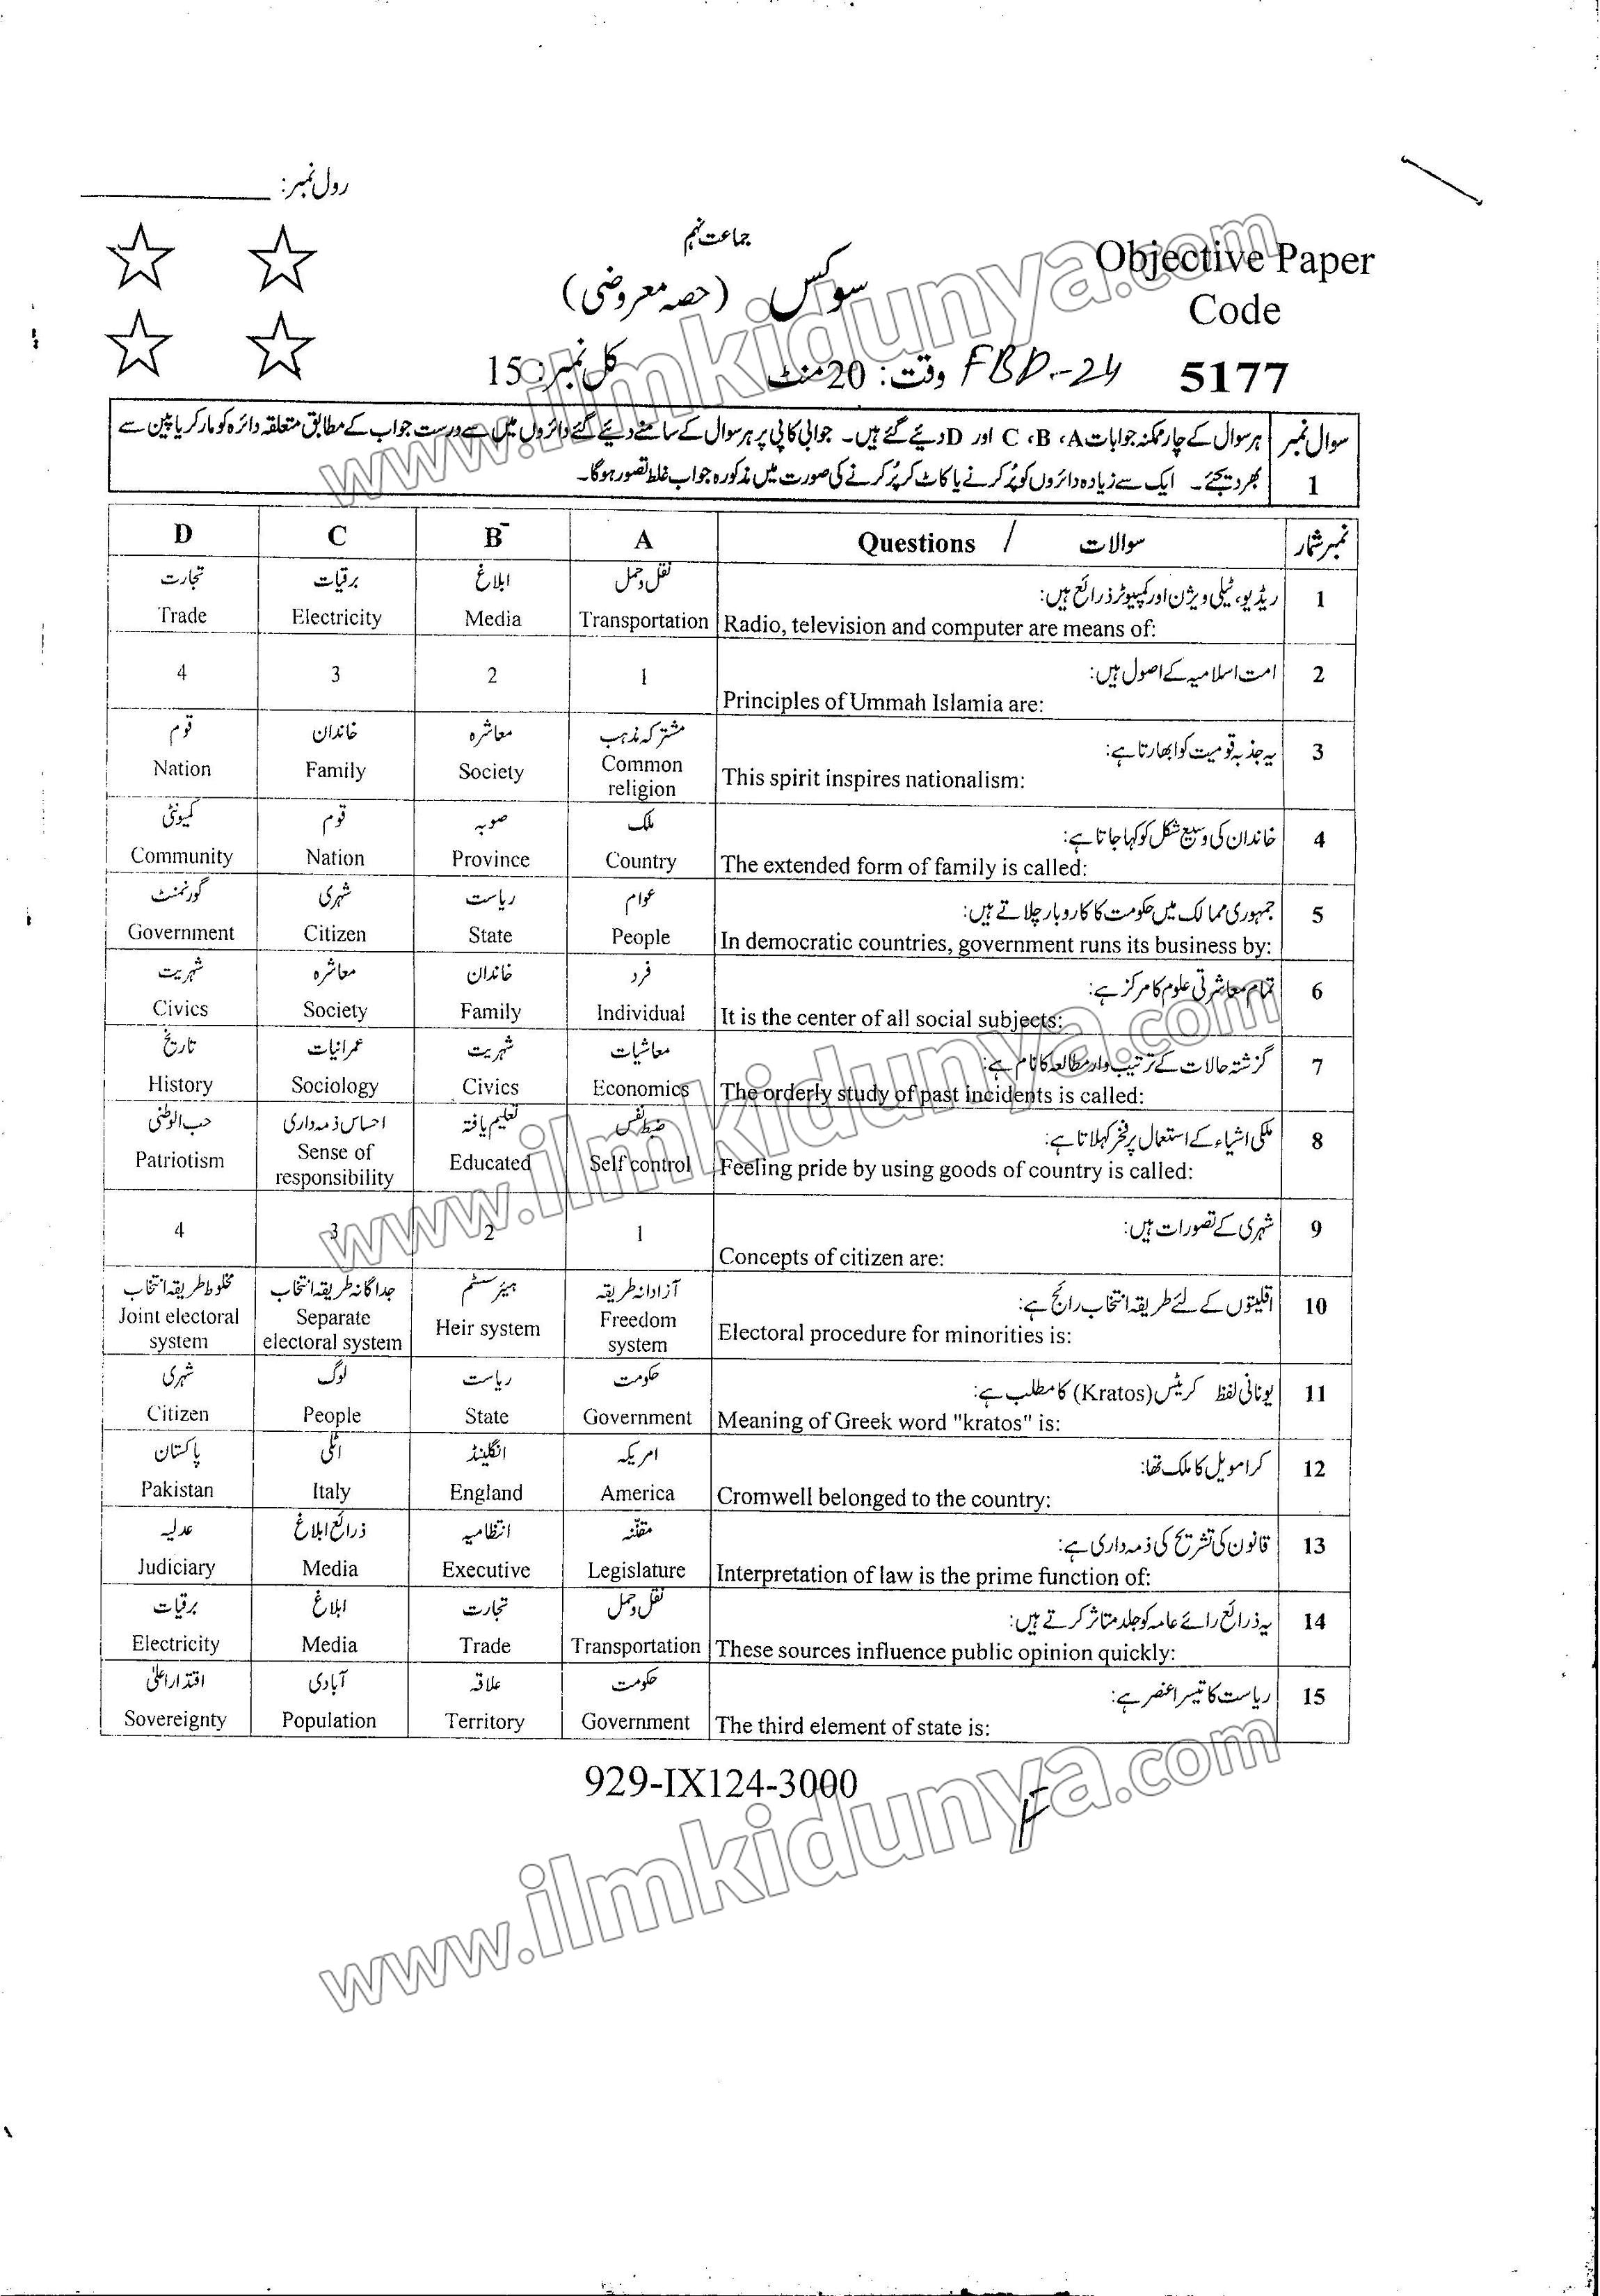 رول نمبر:
جماعت نہم
Objective Paper
سوکس (حصہ معروضی)
Code
کل نمبر: 15
وقت: 20 منٹ
FBD-24
5177
سوال نمبر 1
ہر سوال کے چار ممکنہ جوابات A، B، C اور D دیئے گئے ہیں۔ جوابی کاپی پر ہر سوال کے سامنے دیئے گئے دائروں میں سے درست جواب کے مطابق متعلقہ دائرہ کو مارکر یا پین سے
بھر دیجئے۔ ایک سے زیادہ دائروں کو پُر کرنے یا کاٹ کر پُر کرنے کی صورت میں مذکورہ جواب غلط تصور ہوگا۔
D C B A Questions / سوالات نمبر شمار
تجارت برقیات ابلاغ نقل و حمل ریڈیو، ٹیلی ویژن اور کمپیوٹر ذرائع ہیں: 1
Trade Electricity Media Transportation Radio, television and computer are means of:
4 3 2 1 امت اسلامیہ کے اصول ہیں: 2
Principles of Ummah Islamia are:
قوم خاندان معاشرہ مشترکہ مذہب یہ جذبہ قومیت کو ابھارتا ہے: 3
Nation Family Society Common religion This spirit inspires nationalism:
کمیونٹی قوم صوبہ ملک خاندان کی وسیع شکل کو کہا جاتا ہے: 4
Community Nation Province Country The extended form of family is called:
گورنمنٹ شہری ریاست عوام جمہوری ممالک میں حکومت کا کاروبار چلاتے ہیں: 5
Government Citizen State People In democratic countries, government runs its business by:
شہریت معاشرہ خاندان فرد تمام معاشرتی علوم کا مرکز ہے: 6
Civics Society Family Individual It is the center of all social subjects:
تاریخ عمرانیات شہریت معاشیات گزشتہ حالات کے ترتیب وار مطالعہ کا نام ہے: 7
History Sociology Civics Economics The orderly study of past incidents is called:
حب الوطنی احساس ذمہ داری تعلیم یافتہ ضبط نفس ملکی اشیاء کے استعمال پر فخر کہلاتا ہے: 8
Patriotism Sense of responsibility Educated Self control Feeling pride by using goods of country is called:
4 3 2 1 شہری کے تصورات ہیں: 9
Concepts of citizen are:
مخلوط طریقہ انتخاب جداگانہ طریقہ انتخاب ہیئر سسٹم آزادانہ طریقہ اقلیتوں کے لئے طریقہ انتخاب رائج ہے: 10
Joint electoral system Separate electoral system Heir system Freedom system Electoral procedure for minorities is:
شہری لوگ ریاست حکومت یونانی لفظ کریٹس (Kratos) کا مطلب ہے: 11
Citizen People State Government Meaning of Greek word "kratos" is:
پاکستان اٹلی انگلینڈ امریکہ کرامویل کا ملک تھا: 12
Pakistan Italy England America Cromwell belonged to the country:
عدلیہ ذرائع ابلاغ انتظامیہ مقننہ قانون کی تشریح کی ذمہ داری ہے: 13
Judiciary Media Executive Legislature Interpretation of law is the prime function of:
برقیات ابلاغ تجارت نقل و حمل یہ ذرائع رائے عامہ کو جلد متاثر کرتے ہیں: 14
Electricity Media Trade Transportation These sources influence public opinion quickly:
اقتدار اعلیٰ آبادی علاقہ حکومت ریاست کا تیسرا عنصر ہے: 15
Sovereignty Population Territory Government The third element of state is:
929-IX124-3000
www.ilmkidunya.com
www.ilmkidunya.com
www.ilmkidunya.com